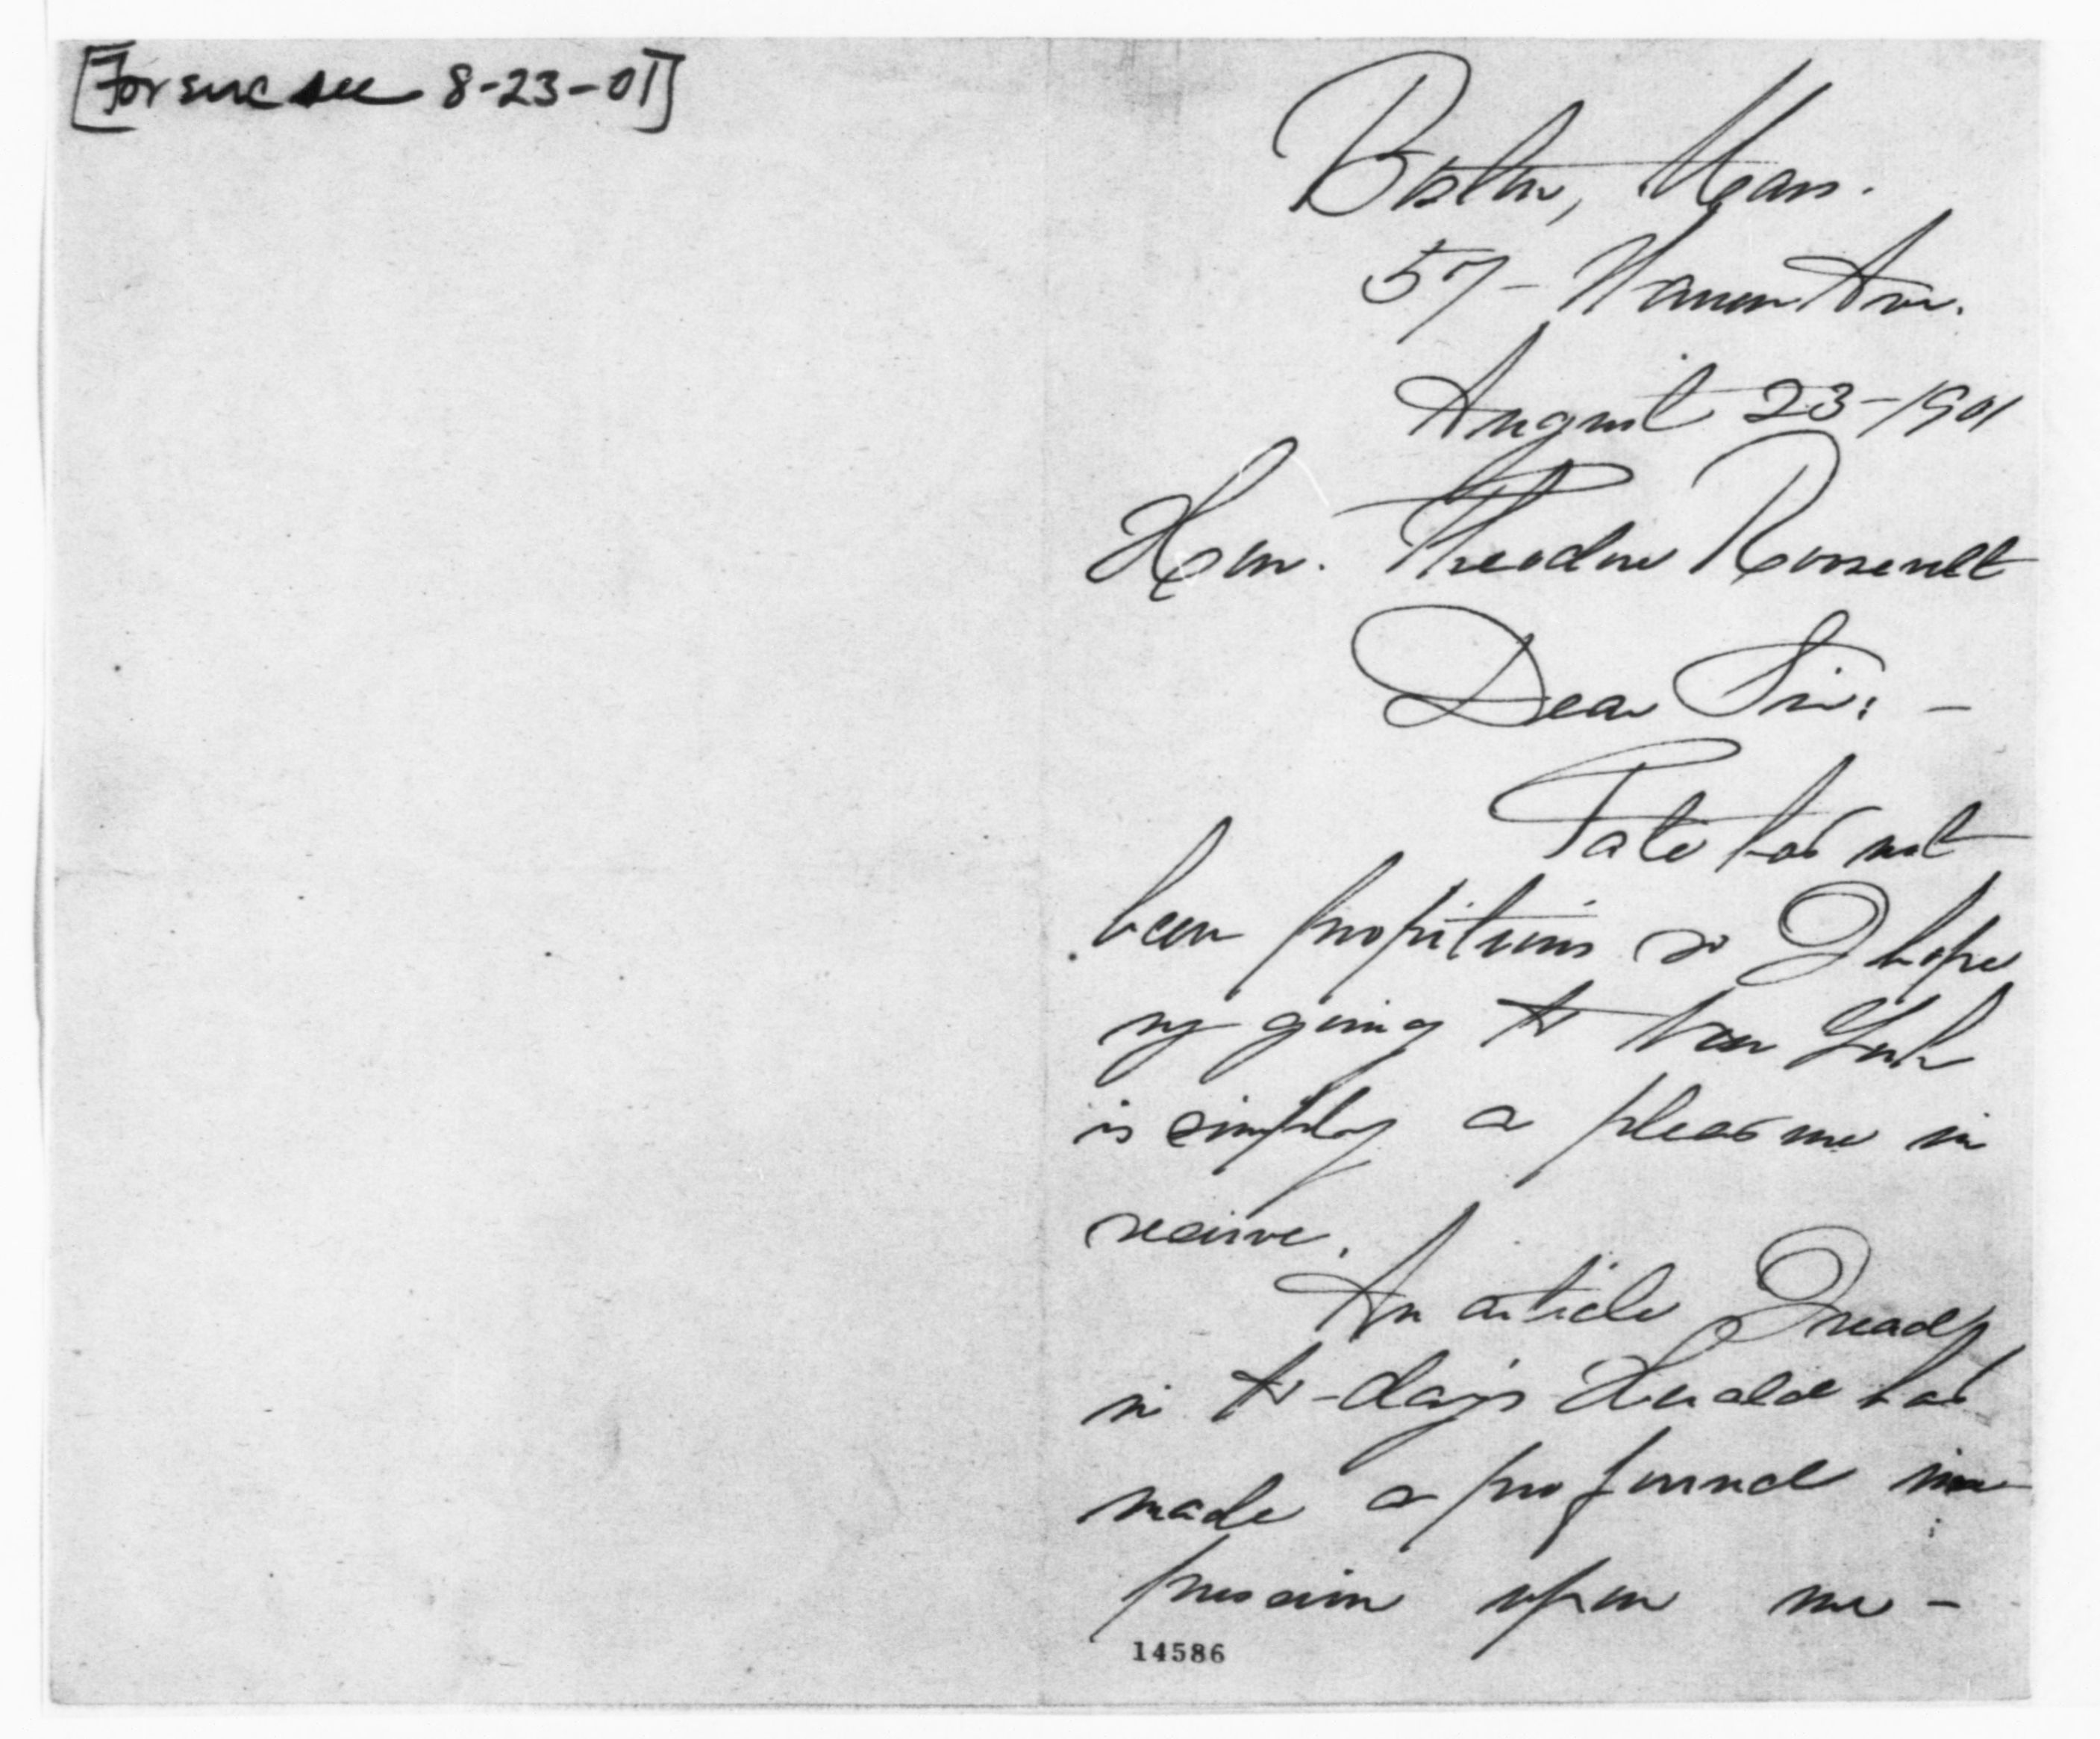 [For enc see 8-23-01]
Boston, Mass.
57- Warren Ave.
August 23-1901
Hon. Theodore Roosevelt
Dear Sir: -
Fate has not
been propitious so I hope
my going to New York
is simply a pleasure in
reserve.
An article I read
in to-day's Herald has
made a profound im-
pression upon me -
14586